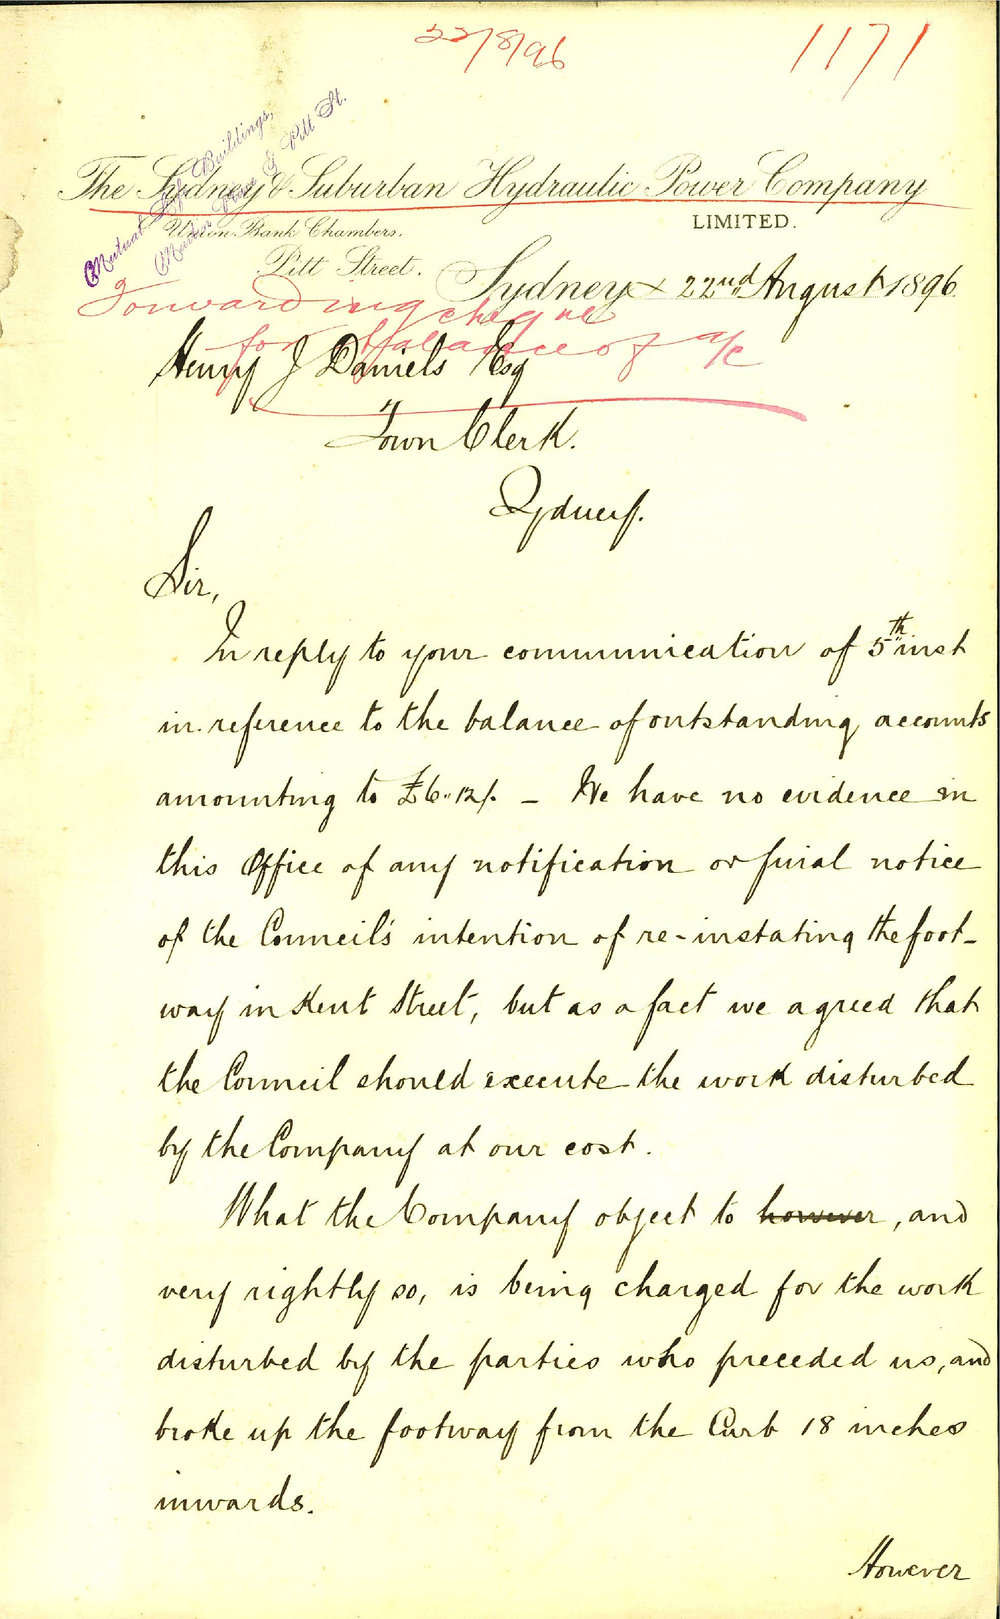 22/8/96
1171
Mutual Life Buildings,
Martin Place & Pitt St.
The Sydney & Suburban Hydraulic Power Company
LIMITED.
Union Bank Chambers,
Pitt Street.
Sydney 22nd August 1896.
Forwarding cheque
for balance of a/c
Henry J Daniels Esq
Town Clerk.
Sydney.
Sir,
In reply to your communication of 5th inst
in reference to the balance of outstanding accounts
amounting to £6..12/. – We have no evidence in
this Office of any notification or final notice
of the Council's intention of re-instating the foot-
way in Kent Street, but as a fact we agreed that
the Council should execute the work disturbed
by the Company at our cost.
What the Company object to however, and
very rightly so, is being charged for the work
disturbed by the parties who preceded us, and
broke up the footway from the Curb 18 inches
inwards.
However